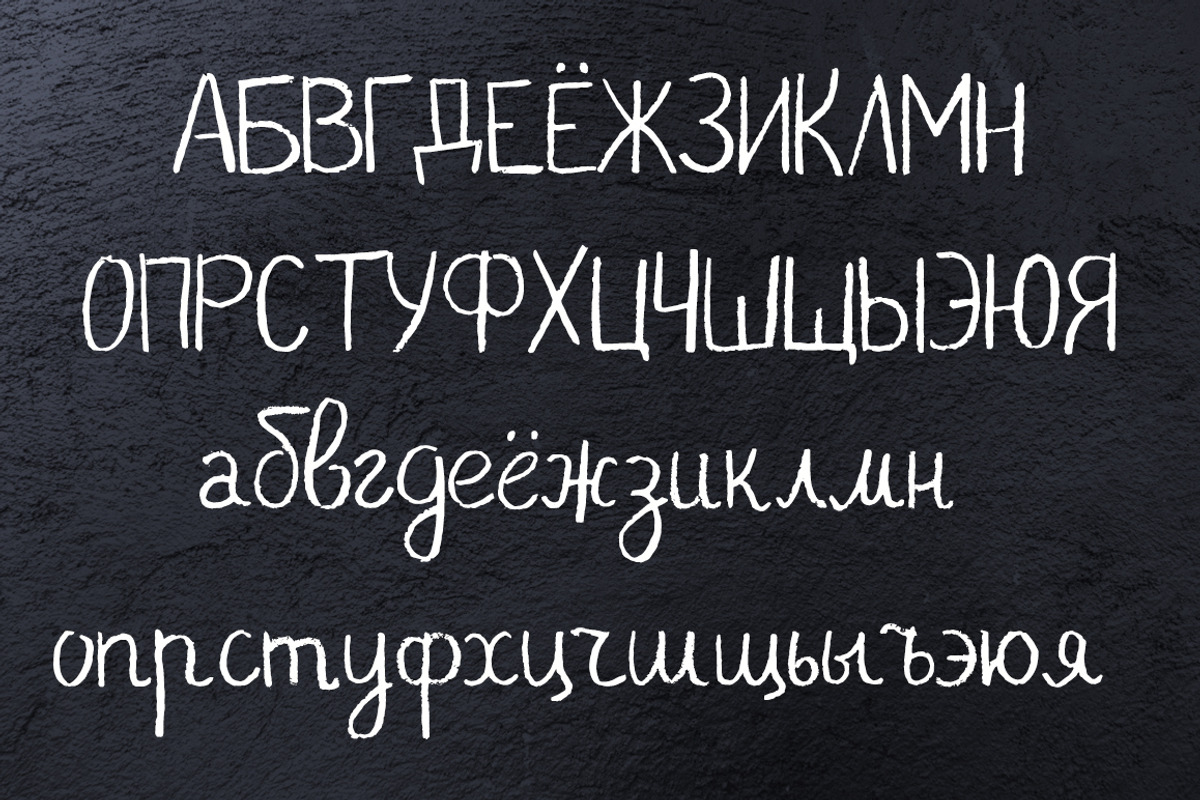 АБВГДЕЁЖЗИКЛМН
ОПРСТУФХЦЧШЩЫЭЮЯ
абвгдеёжзиклмн
опрстуфхцчшщьыъэюя